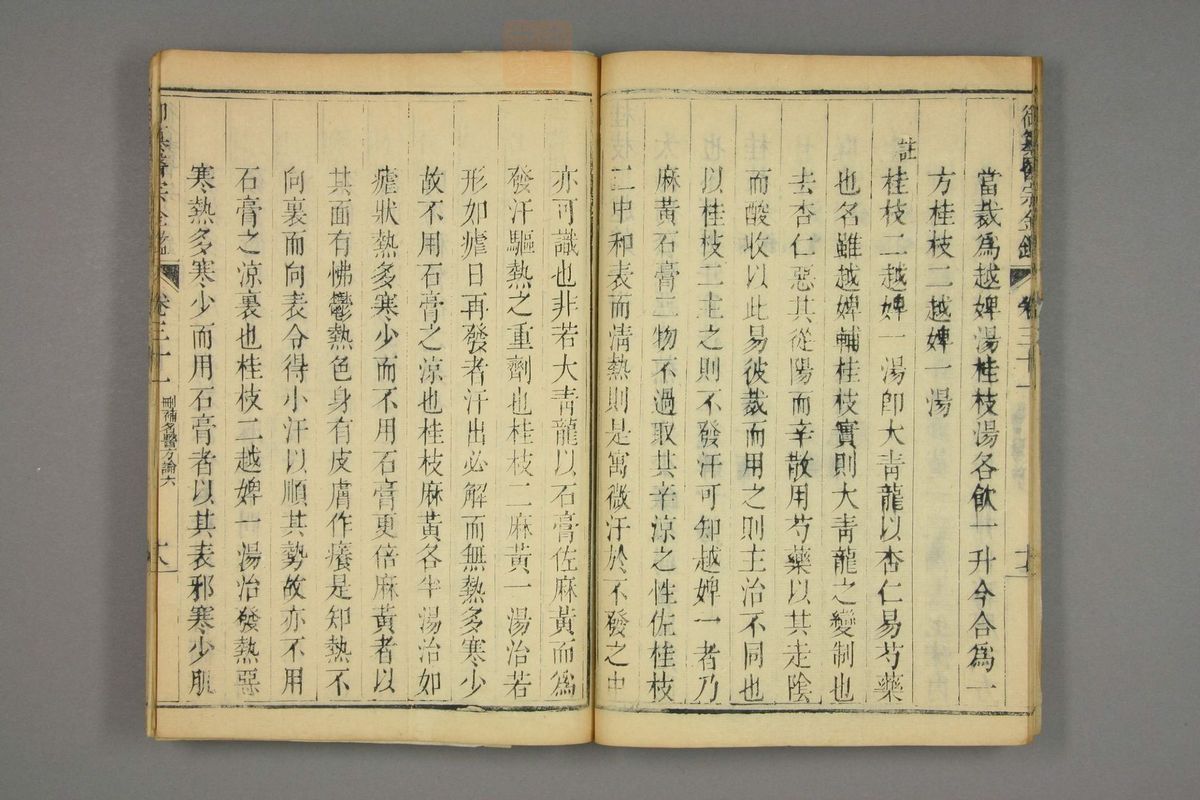 御纂醫宗金鑑 卷三十一
當裁爲越婢湯桂枝湯各飲一升今合爲一
方桂枝二越婢一湯
註桂枝二越婢一湯卽大靑龍以杏仁易芍藥
也名雖越婢輔桂枝實則大靑龍之變制也
去杏仁惡其從陽而辛散用芍藥以其走陰
而酸收以此易彼裁而用之則主治不同也
以桂枝二主之則不發汗可知越婢一者乃
麻黃石膏二物不過取其辛涼之性佐桂枝
二中和表而淸熱則是寓微汗於不發之中
亦可識也非若大靑龍以石膏佐麻黃而爲
發汗驅熱之重劑也桂枝二麻黃一湯治若
形如瘧日再發者汗出必解而無熱多寒少
故不用石膏之涼也桂枝麻黃各半湯治如
瘧狀熱多寒少而不用石膏更倍麻黃者以
其面有怫鬱熱色身有皮膚作癢是知熱不
向裏而向表令得小汗以順其勢故亦不用
石膏之涼裏也桂枝二越婢一湯治發熱惡
寒熱多寒少而用石膏者以其表邪寒少肌
御纂醫宗金鑑 卷三十一 刪補名醫方論六 十八